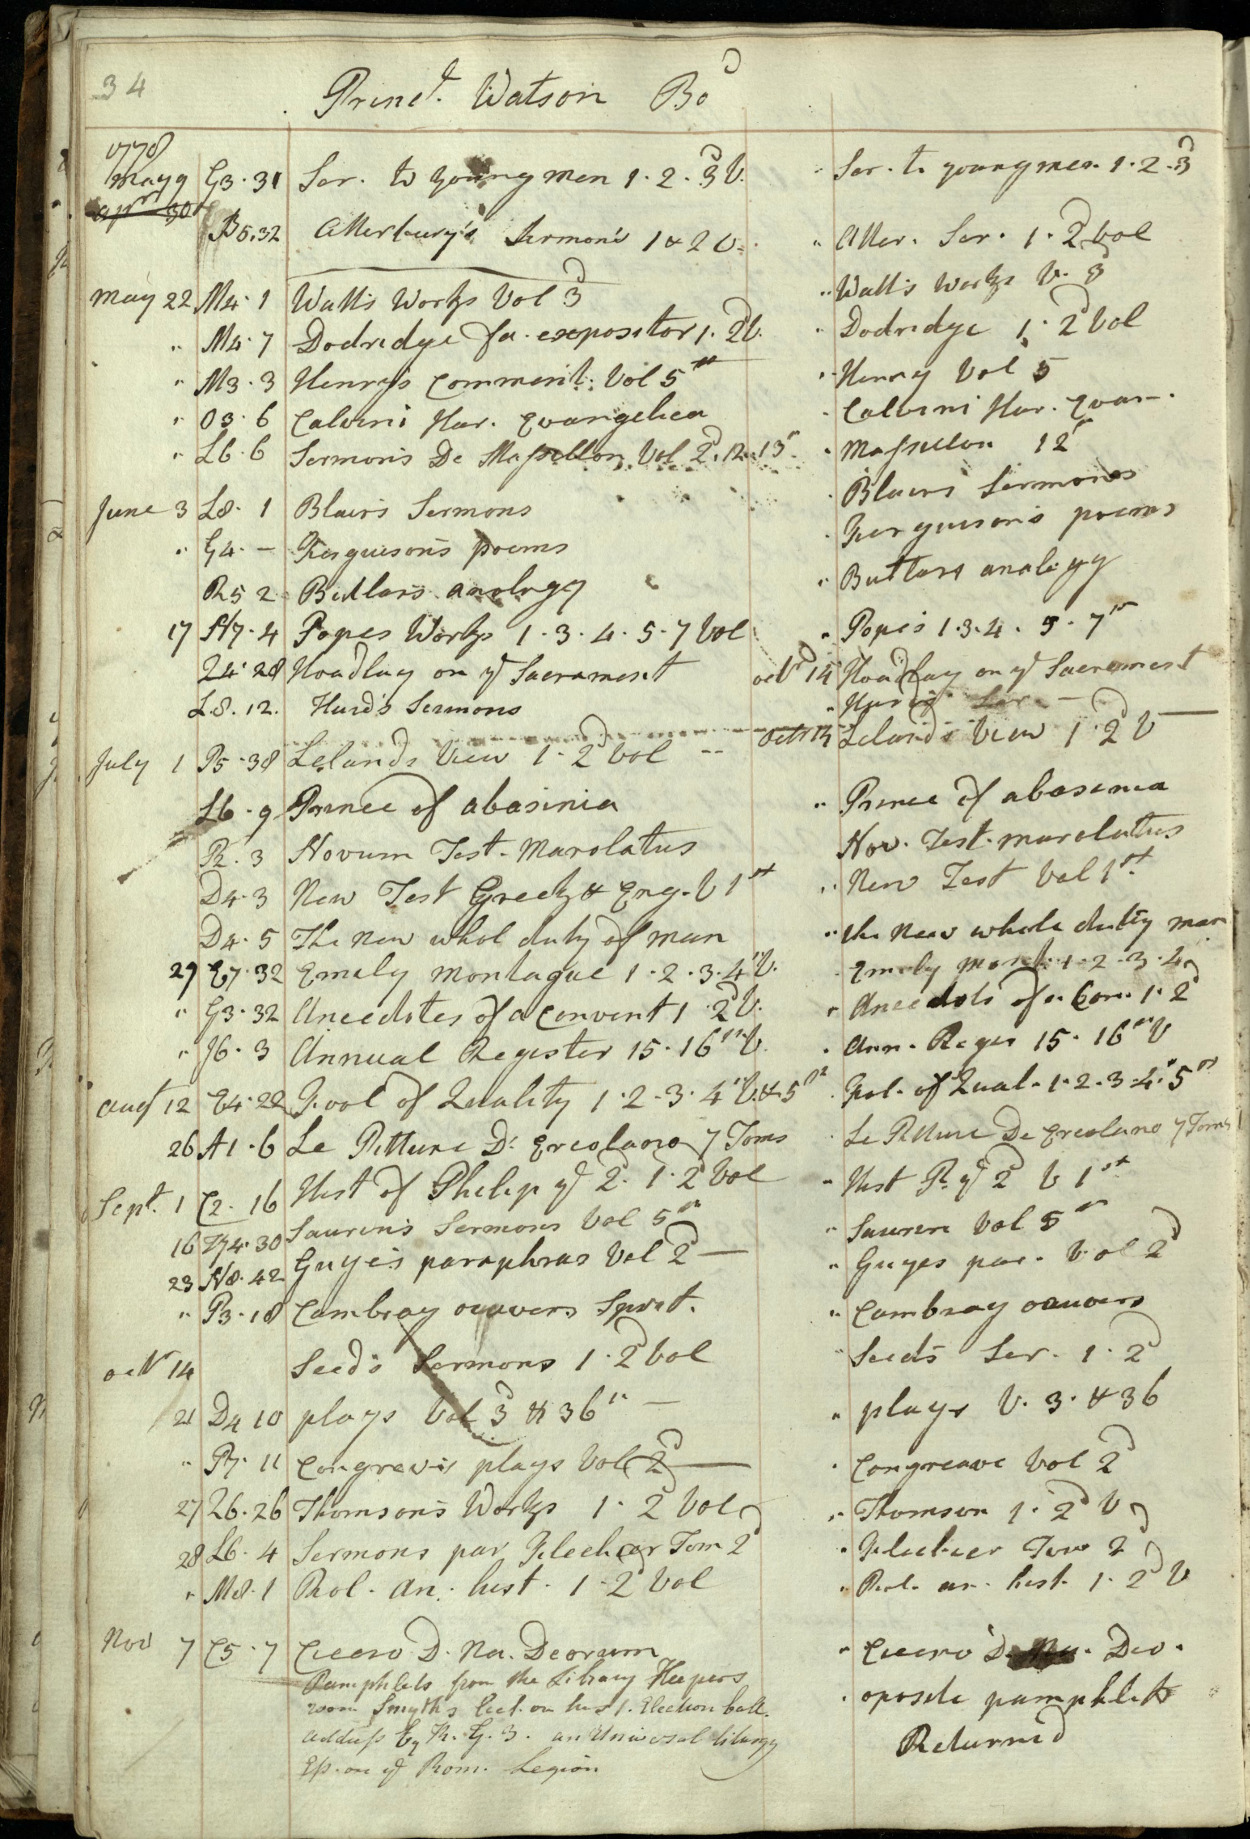 34
Princl. Watson Bod
1778
May 9 G3.31 Ser. to young men 1.2.3d V. " Ser. to young men 1.2.3d
apr 30
B5.32 Atterbury's Sermons 1 & 2 V. " Atter. Ser. 1.2d Vol
May 22 M4.1 Watts Works Vol 3d " Watts Works V. 3d
" M4.7 Dodridge fa. expositor 1.2d V. " Dodridge 1.2d Vol
" M3.3 Henrys Comment. Vol 5th " Henry Vol 5
" O3.6 Calvini Har. Evangelica " Calvini Har. Evan.
" L6.6 Sermons De Massillon Vol 2d.12.13th " Massillon 12th
June 3 L8.1 Blairs Sermons " Blairs Sermons
" G4.- Fergusons poems " Fergusons poems
R5 2 Butlars analogy " Buttlars analogy
17 N7.4 Popes Works 1.3.4.5.7 Vol " Popes 1.3.4.5.7th
24.28 Hoadlay on ye Sacrament octr 14 Hoadlay on ye Sacrament
L8.12. Hurds Sermons " Hurds Ser.
July 1 P5.38 Lelands View 1.2d Vol -- octr 14 Lelands View 1.2d V
L6.9 Prince of abasinia " Prince of abasinia
R.3 Novum Test. Marolatus Nov. Test. marolatus
D4.3 New Test Greek & Eng. V 1st " New Test Vol 1st
D4.5 The New whol duty of man " the New whole duty man
29 E7.32 Emely Montague 1.2.3.4th V. " Emely Mont. 1.2.3.4
" G3.32 Anecdotes of a Convent 1.2d V. " Anecdots of a Con. 1.2d
" J6.3 Annual Register 15.16th V. " Ann. Regis 15.16th V
augt 12 E4.22 Fool of Quality 1.2.3.4th V. & 5th " Fool. of Qual. 1.2.3.4th 5th
26 A1.6 Le Pitture D: Ercolano 7 Toms " Le Pitture De Ercolano 7 Toms
Sept. 1 C2.16 Hist of Philip ye 2d. 1.2d Vol " Hist P. ye 2d V 1st
16 4.30 Saurins Sermons Vol 5th " Saurin Vol 5th
23 N8.42 Guyes paraphras Vol 2d — " Guyes par. Vol 2d
" P3.18 Cambray oeuvers Spirit. " Cambray oeuvers
octr 14 Seeds Sermons 1.2d Vol " Seeds Ser. 1.2d
21 D4 10 plays Vol 3d & 36th — " plays V. 3. & 36
" P7.11 Congreves plays Vol 2d — " Congreave Vol 2d
27 26.26 Thomsons Works 1.2d Vol " Thomson 1.2d V
28 L6.4 Sermons par Flechier Tom 2d " Flechier Tom 2d
" M8.1 Rol. an. hist. 1.2d Vol " Rol. an. hist. 1.2d V
Nov 7 C5.7 Cicero D. Na. Deorum " Cicero D. Na. Deo.
Pamphlets from the Library Keepers
room Smyths Lect. on hist. Election ball. " oposite pamphlets
address By R. G. 3. an Universal liturgy Returned
Ess. on ye Rom. Legion